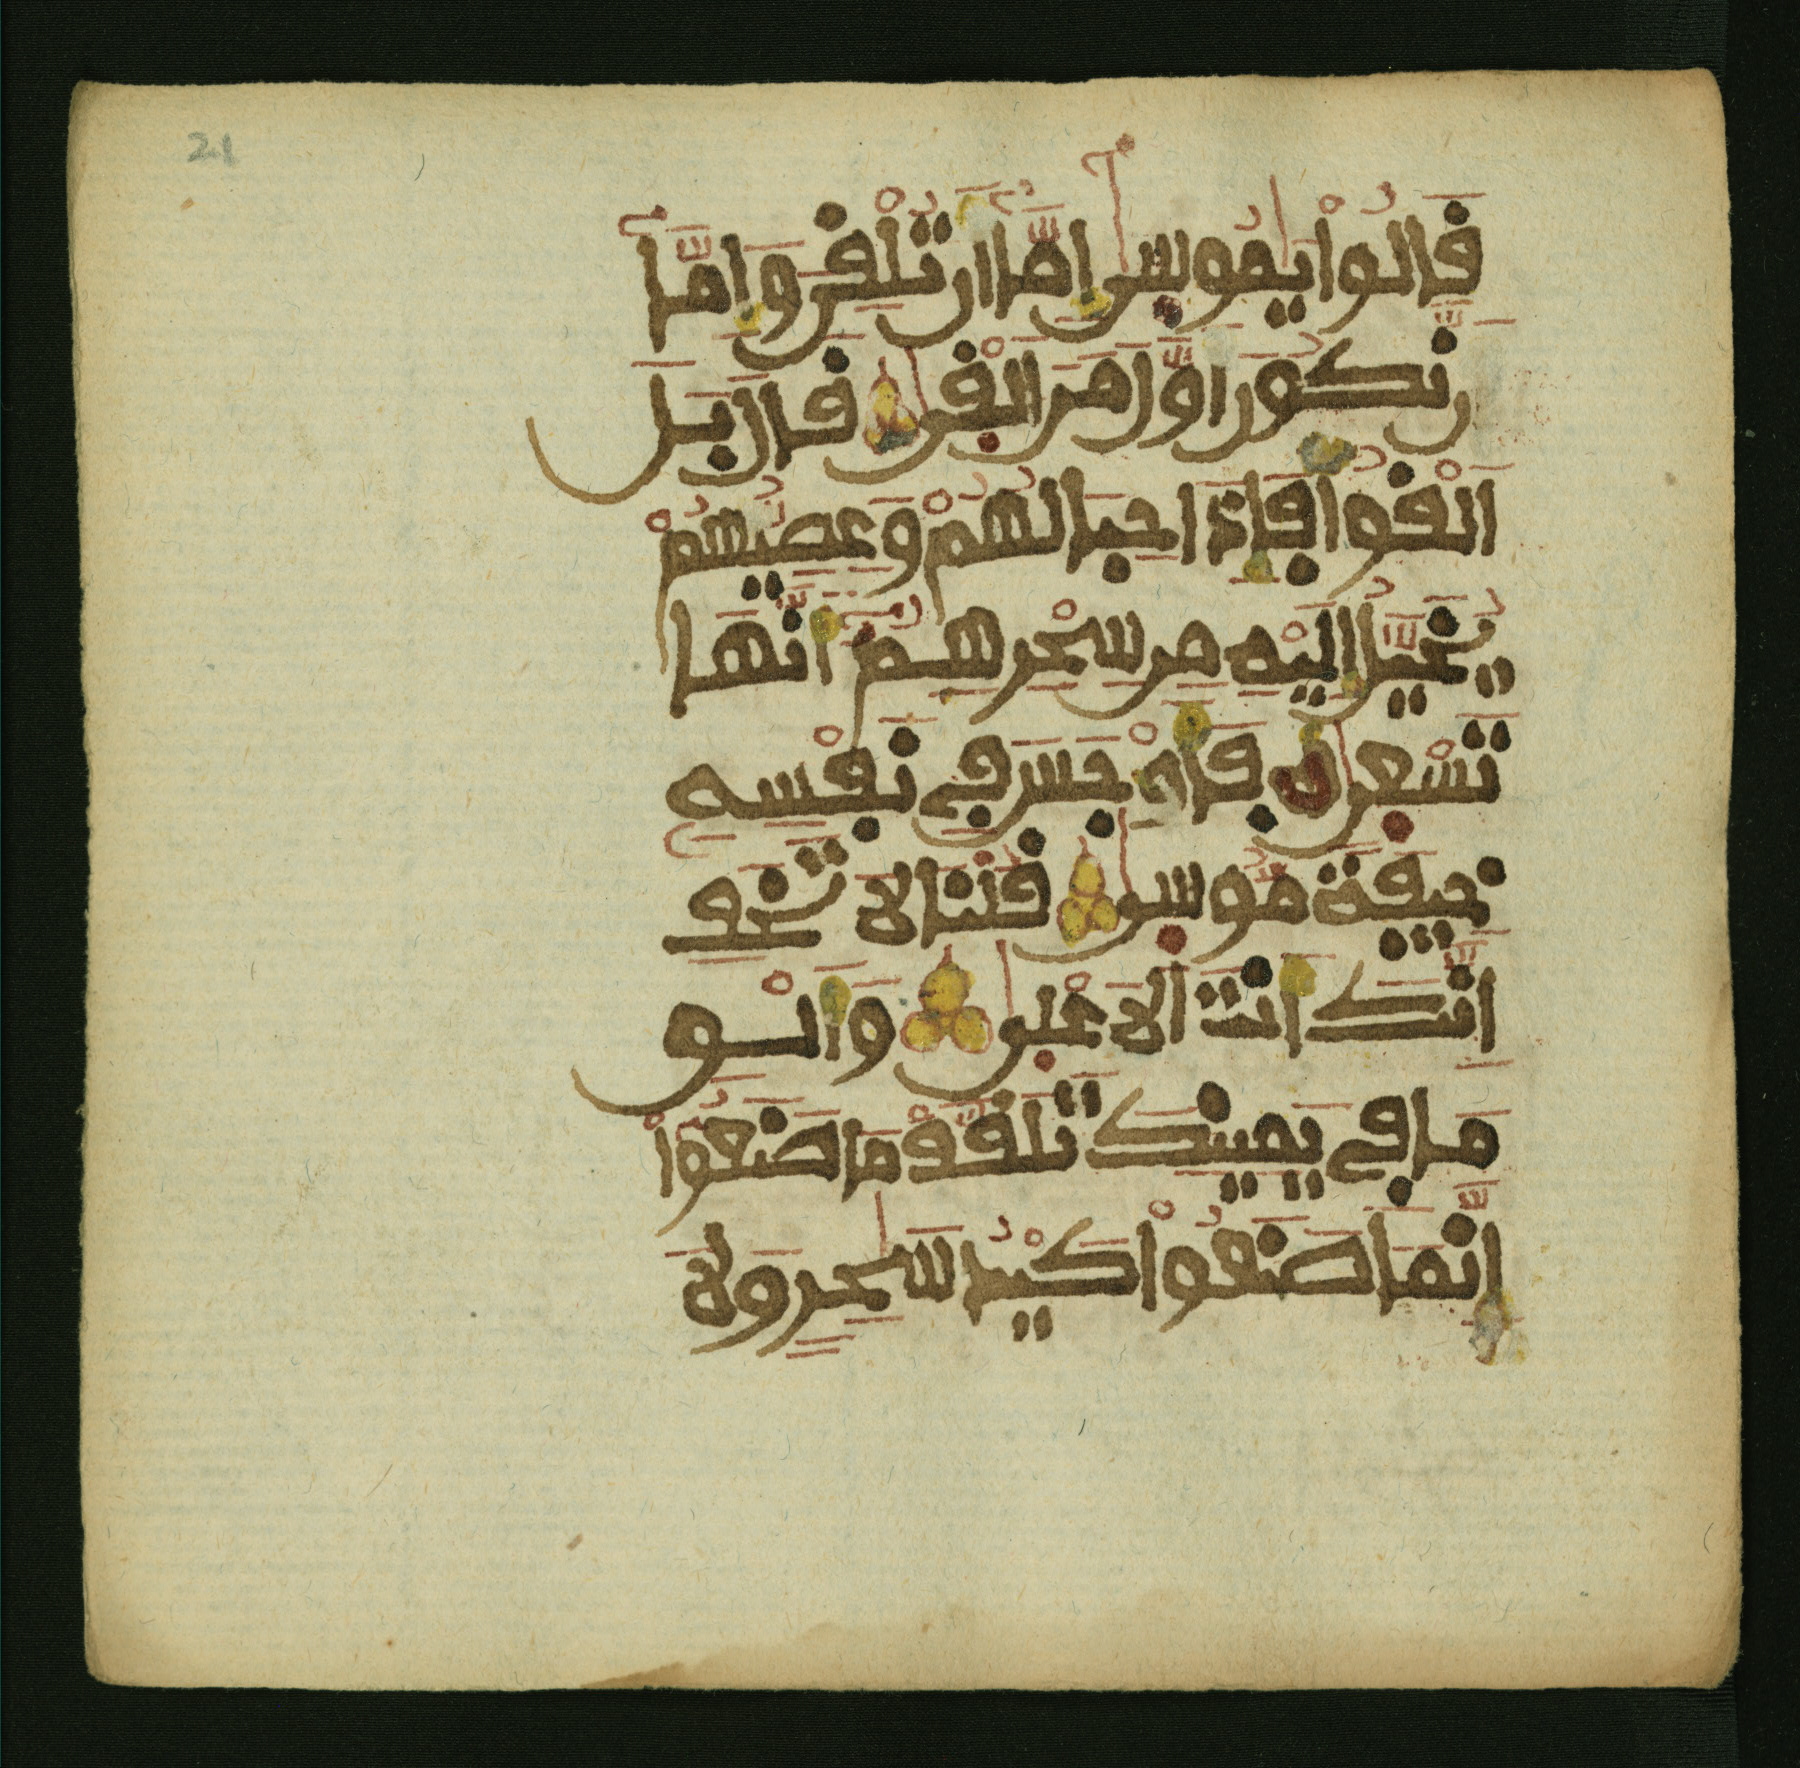 21
قَالُوا۟ يَٰمُوسَىٰٓ إِمَّآ أَن تُلْقِىَ وَإِمَّآ أَ
ن نَّكُونَ أَوَّلَ مَنْ أَلْقَىٰ قَالَ بَلْ
أَلْقُوا۟ فَإِذَا حِبَالُهُمْ وَعِصِيُّهُمْ
يُخَيَّلُ إِلَيْهِ مِن سِحْرِهِمُۥٓ أَنَّهَا
تَسْعَىٰ فَأَوْجَسَ فِے نَفْسِهِۦ
خِيفَةً مُّوسَىٰ قُلْنَا لَا تَخَفِ
اِنَّكَ أَنتَ أَلَاعْلَىٰ وَأَلْقِ
مَا فِے يَمِينِكَ تَلَقَّفْ مَا صَنَعُوٓا۟
إِنَّمَا صَنَعُوا۟ كَيْدُ سَٰحِرٍ وَلَا